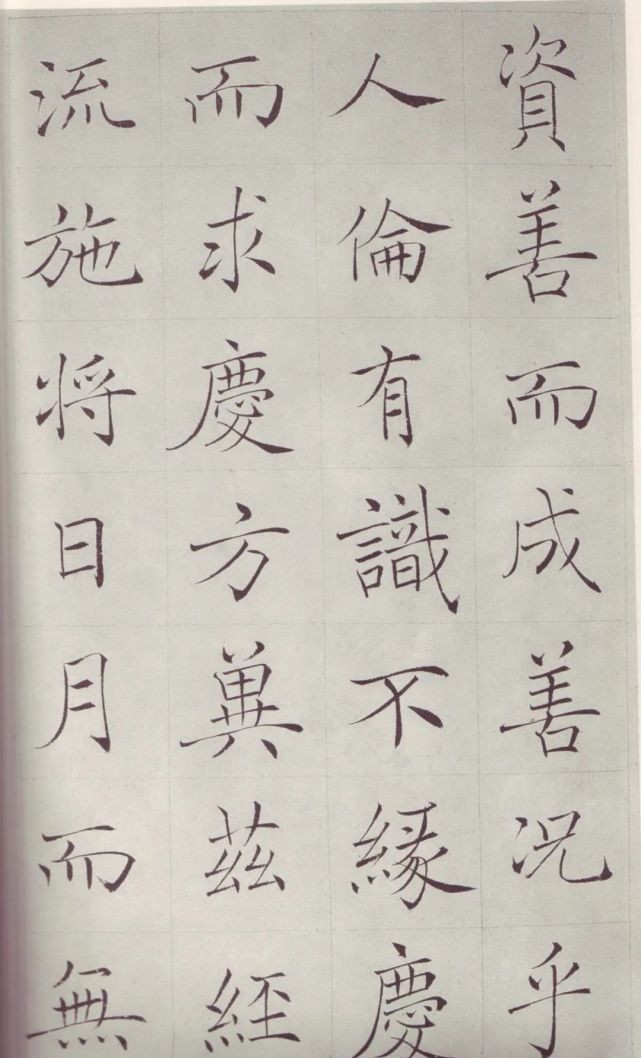 資善而成善況乎
人倫有識不緣慶
而求慶方冀茲經
流施将日月而無